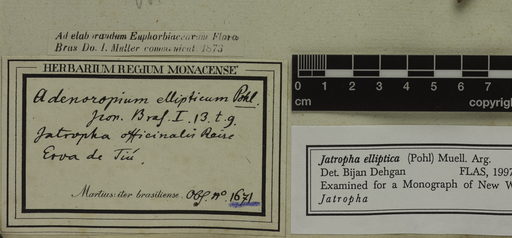 Ad elaborandum Euphorbiacearum Florae
Bras Do. I. Muller communicat. 1873
HERBARIUM REGIUM MONACENSE
Adenoropium ellipticum Pohl.
Bras. I. 13. t. 9.
Jatropha officinalis
Erva de Tiú.
Martius: iter brasiliense. Obs. no. 1671
0 1 2 3 4 5 6 7
cm
copyrigh
Jatropha elliptica (Pohl) Muell. Arg.
Det. Bijan Dehgan FLAS, 1997
Examined for a Monograph of New W
Jatropha